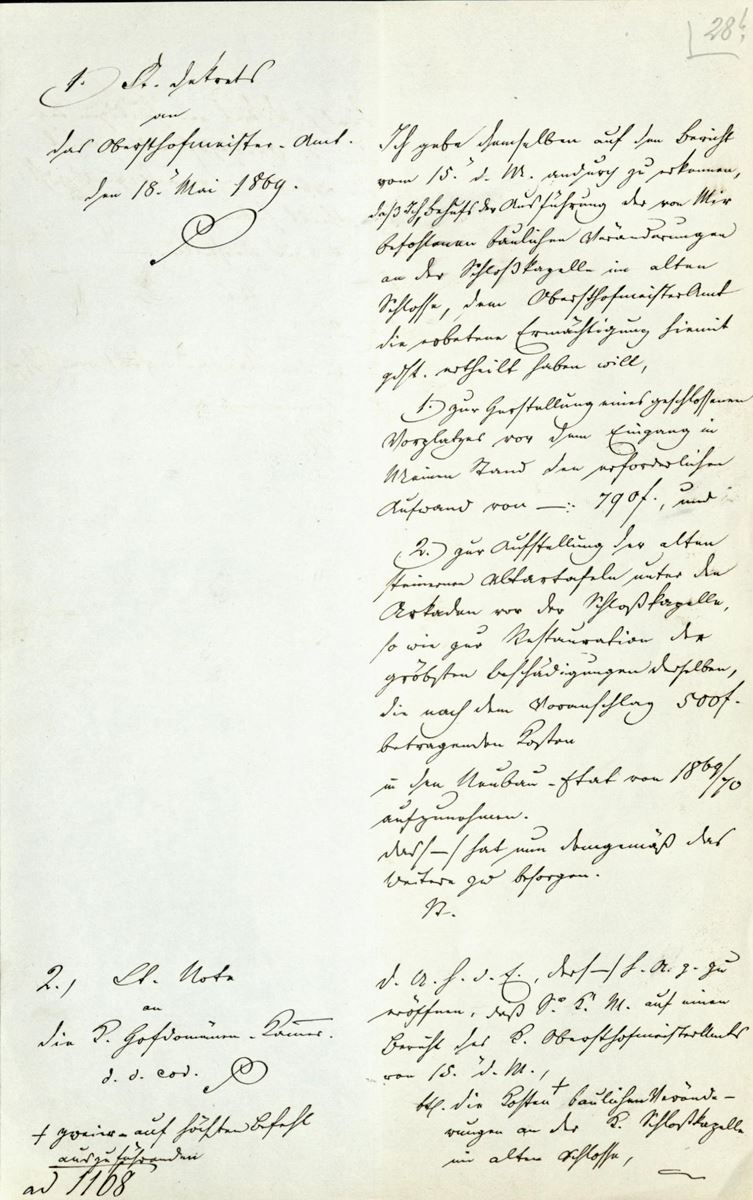 28
1. St. Dekrets
an
das Obersthofmeister-Amt.
den 18. Mai 1869.
Ich gebe demselben auf den Bericht
vom 15. d. M. andurch zu erkennen,
daß Ich, behufs der Ausführung der von Mir
befohlenen baulichen Veränderungen
an der Schloßkapelle im alten
Schlosse, dem Obersthofmeister Amt
die erbetene Ermächtigung hiemit
gdst. ertheilt haben will,
1. zur Herstellung eines geschlossenen
Vorplatzes vor dem Eingang in
Meinen Stand den erforderlichen
Aufwand von —: 790 f., und
2. zur Aufstellung der alten
steinernen Altartafeln unter den
Arkaden vor der Schloßkapelle,
so wie zur Restauration der
gröbsten Beschädigungen derselben,
die nach dem Voranschlag 500 f.
betragenden Kosten
in den Neubau-Etat von 1869/70
aufzunehmen.
Dass/—/ hat nun demgemäß das
Weitere zu besorgen.
St.
2., St. Note
an
die K. Hofdomänen-Kammer.
d. d. eod.
+ zweier auf höchsten Befehl
auszuführenden
ad 1168
d. A. h. d. E., ders/—/ h. A. z. zu
eröffnen, daß S. K. M. auf einen
Bericht des K. Obersthofmeister Amts
von 15. d. M.,
btf. die Kosten + baulichen Verände-
rungen an der K. Schloßkapelle
im alten Schlosse,